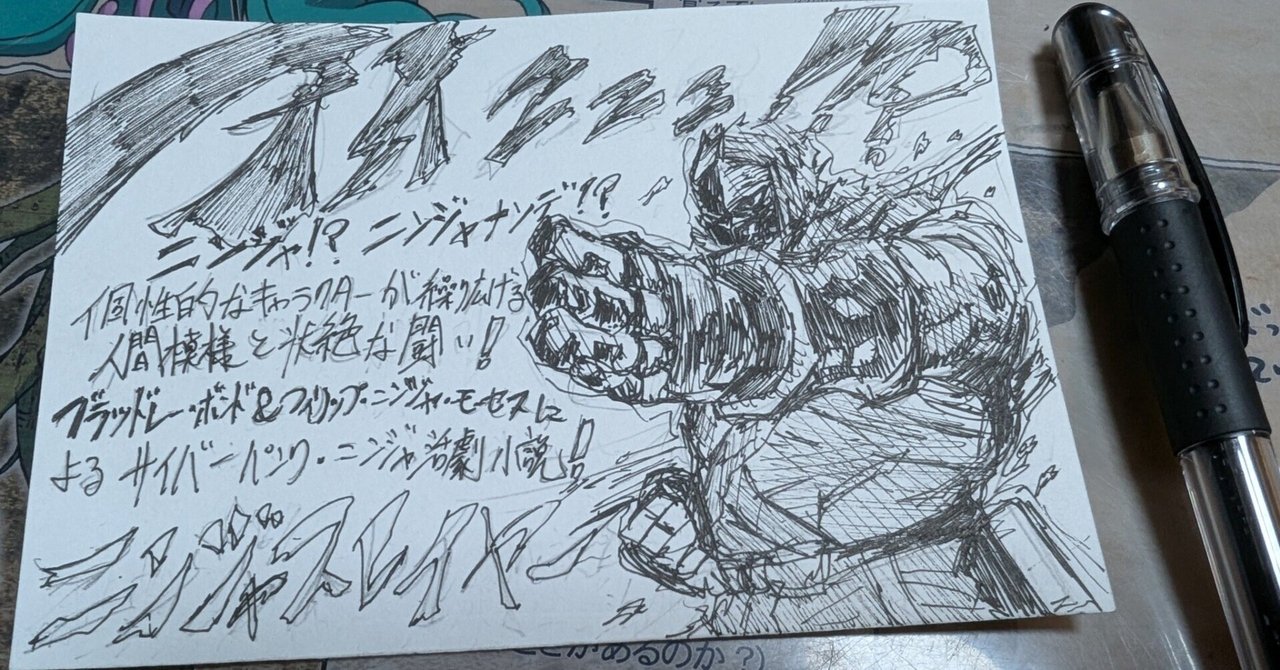 ニンジャ!? ニンジャナンデ!?
個性的なキャラクターが繰り広げる
人間模様と状絶な闘い!
ブラッドレー・ボンド&フィリップ・ニンジャ・モーゼスに
よるサイバーパンク・ニンジャ活劇小説!!
ニンジャスレイヤー
があるのか?)